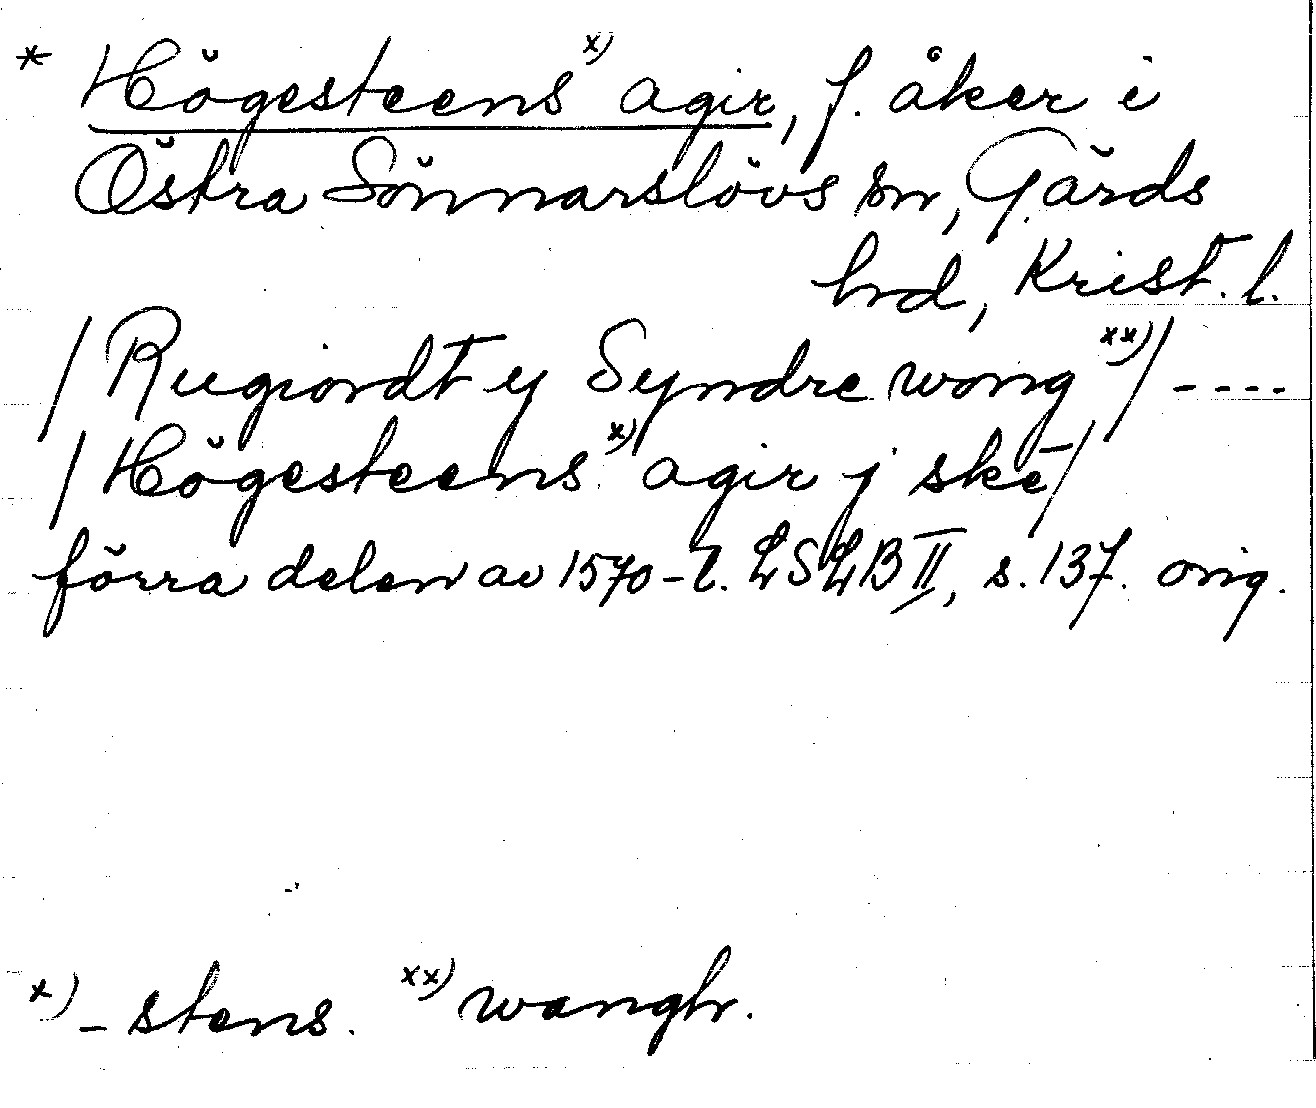 * Högesteens x) agir, f. åker i
Östra Sönnarslövs sn, Gärds
hrd, Krist. l.
/ Rugiordt y Syndre wong xx) / ----
/ Högesteens x) agir j ske /
förra delen av 1570-t. LSLB II, s. 137. orig.
x) - stens. xx) wangh.